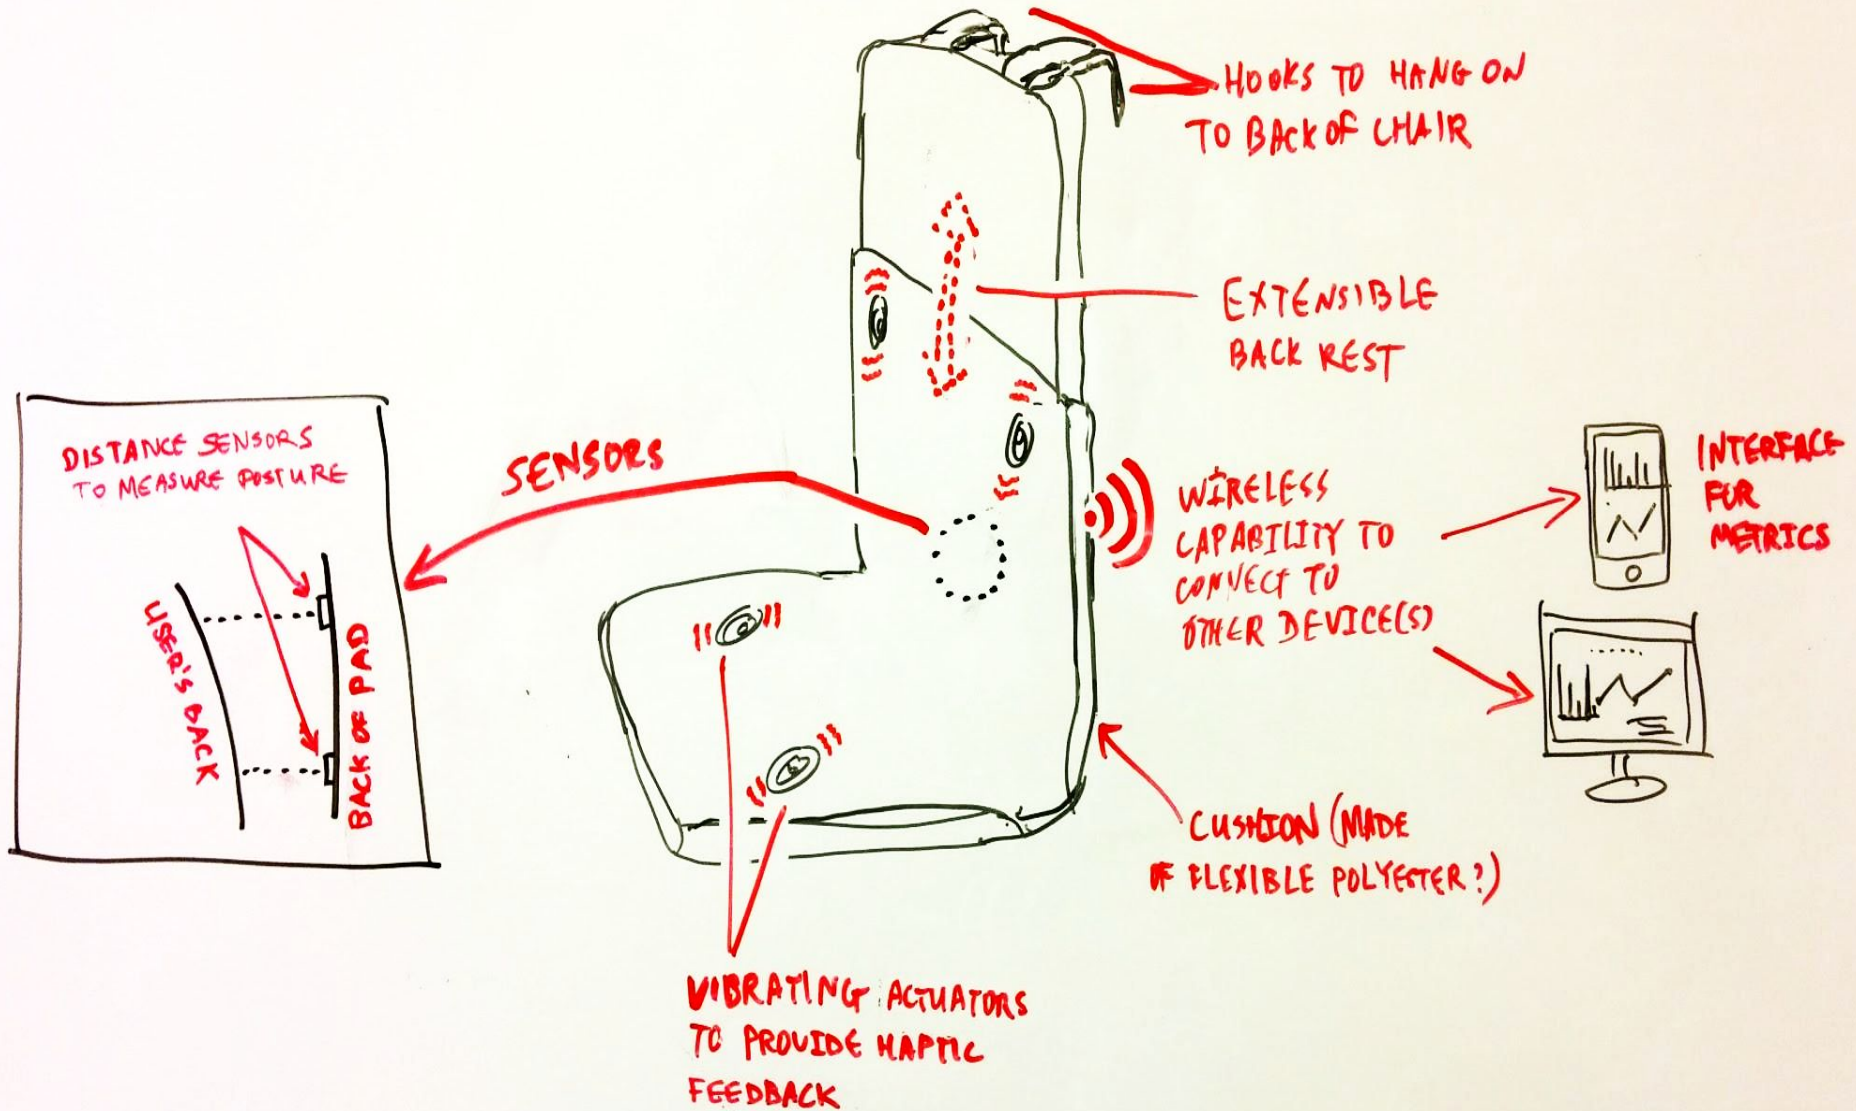 HOOKS TO HANG ON
TO BACK OF CHAIR
EXTENSIBLE
BACK REST
DISTANCE SENSORS
TO MEASURE POSTURE
SENSORS
USER'S BACK
BACK OF PAD
WIRELESS
CAPABILITY TO
CONNECT TO
OTHER DEVICE(S)
INTERFACE
FOR
METRICS
CUSHION (MADE
OF FLEXIBLE POLYESTER?)
VIBRATING ACTUATORS
TO PROVIDE HAPTIC
FEEDBACK